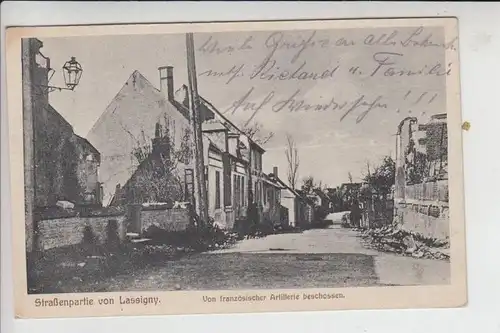 Viele Grüße an alle Bekannten
u. Familie
Auf Wiedersehn !!!
Straßenpartie von Lassigny.
Von französischer Artillerie beschossen.